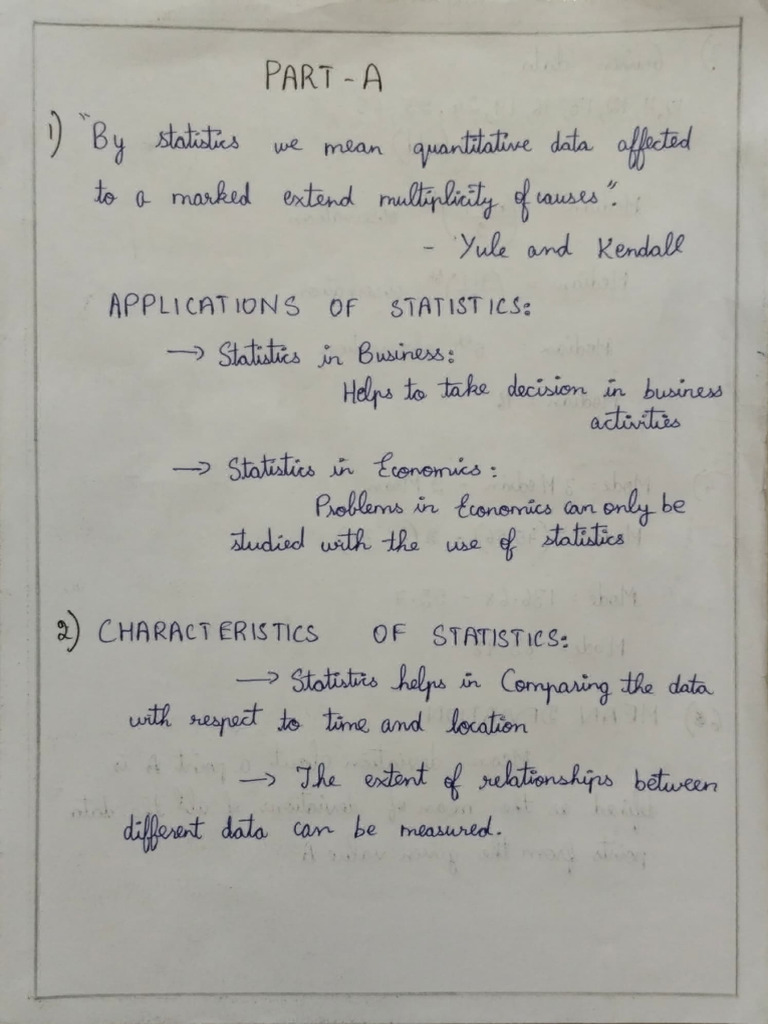 PART - A
1) "By statistics we mean quantitative data affected
to a marked extend multiplicity of causes".
- Yule and Kendall
APPLICATIONS OF STATISTICS:
→ Statistics in Business:
Helps to take decision in business
activities
→ Statistics in Economics:
Problems in Economics can only be
studied with the use of statistics
2) CHARACTERISTICS OF STATISTICS:
→ Statistics helps in Comparing the data
with respect to time and location
→ The extent of relationships between
different data can be measured.